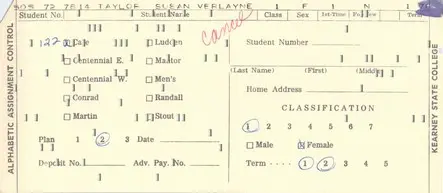 505 72 7614 TAYLOR SUSAN VERLAYNE 1 F 1 N
Student No. Student Name Class Sex 1st-Time Term
Cancel
ALPHABETIC ASSIGNMENT CONTROL
122 Cale Ludden
Centennial E. Mantor
Centennial W. Men's
Conrad Randall
Martin Stout
Plan 1 2 3 Date
Deposit No. Adv. Pay. No.
Student Number
(Last Name) (First) (Middle)
Home Address
CLASSIFICATION
1 2 3 4 5 6 7
Male Female
Term 1 2 3 4 5
KEARNEY STATE COLLEGE